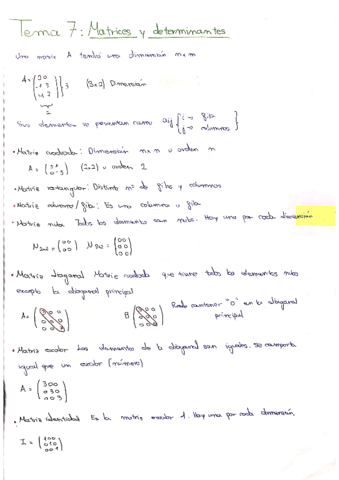 Tema 7: Matrices y determinantes
Una matriz A tendrá una dimensión n×m
A = 3 (3×2) Dimensión
2
Sus elementos se presentan como aij { i → fila
j → columna }
• Matriz cuadrada: Dimensión n×n u orden n
A = (2×2) u orden 2
• Matriz rectangular: Distinto nº de filas y columnas
• Matriz columna/fila: Es una columna o fila
- Matriz nula Todos los elementos son nulos. Hay una por cada dimensión
N2x2 = (0 0
0 0) N3x2 = (0 0
0 0
0 0)
• Matriz diagonal Matriz cuadrada que tiene todos los elementos nulos
excepto la diagonal principal
A = B Puede contener "0" en la diagonal
principal
• Matriz escalar Los elementos de la diagonal son iguales. Se comporta
igual que un escalar (número)
A = (3 0 0
0 3 0
0 0 3)
• Matriz identidad Es la matriz escalar 1. Hay una por cada dimensión.
I = (1 0 0
0 1 0
0 0 1)